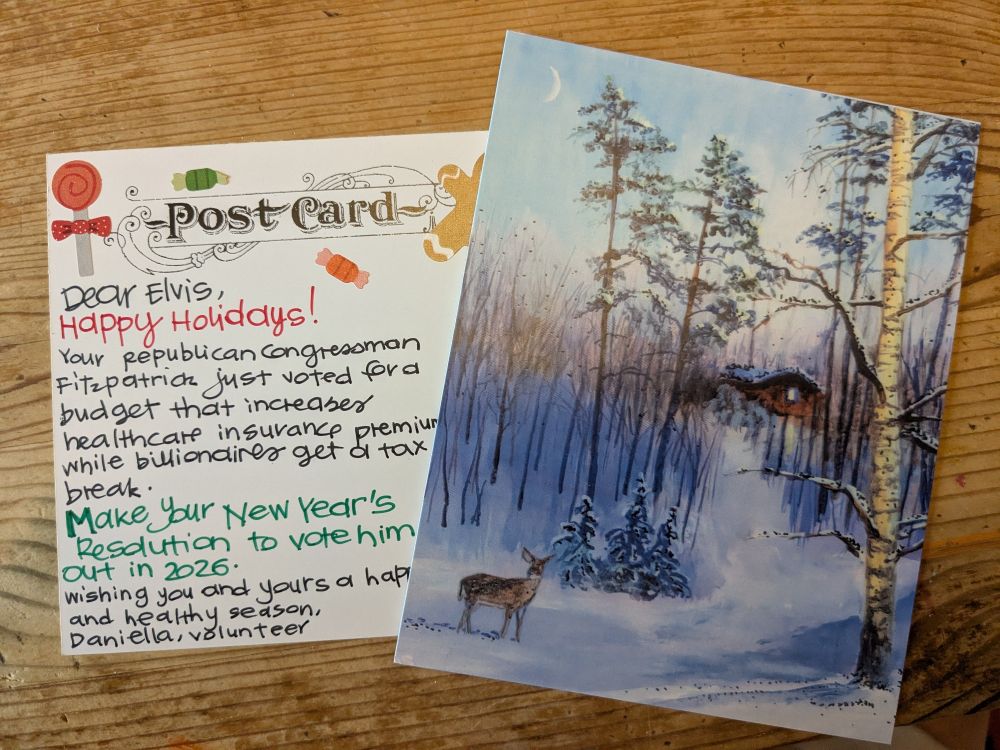 Post Card
Dear Elvis,
Happy Holidays!
Your republican Congressman
Fitzpatrick just voted for a
budget that increases
healthcare insurance premium
while billionaires get a tax
break.
Make Your New Year's
Resolution to vote him
out in 2026.
wishing you and yours a happ
and healthy season,
Daniella, volunteer